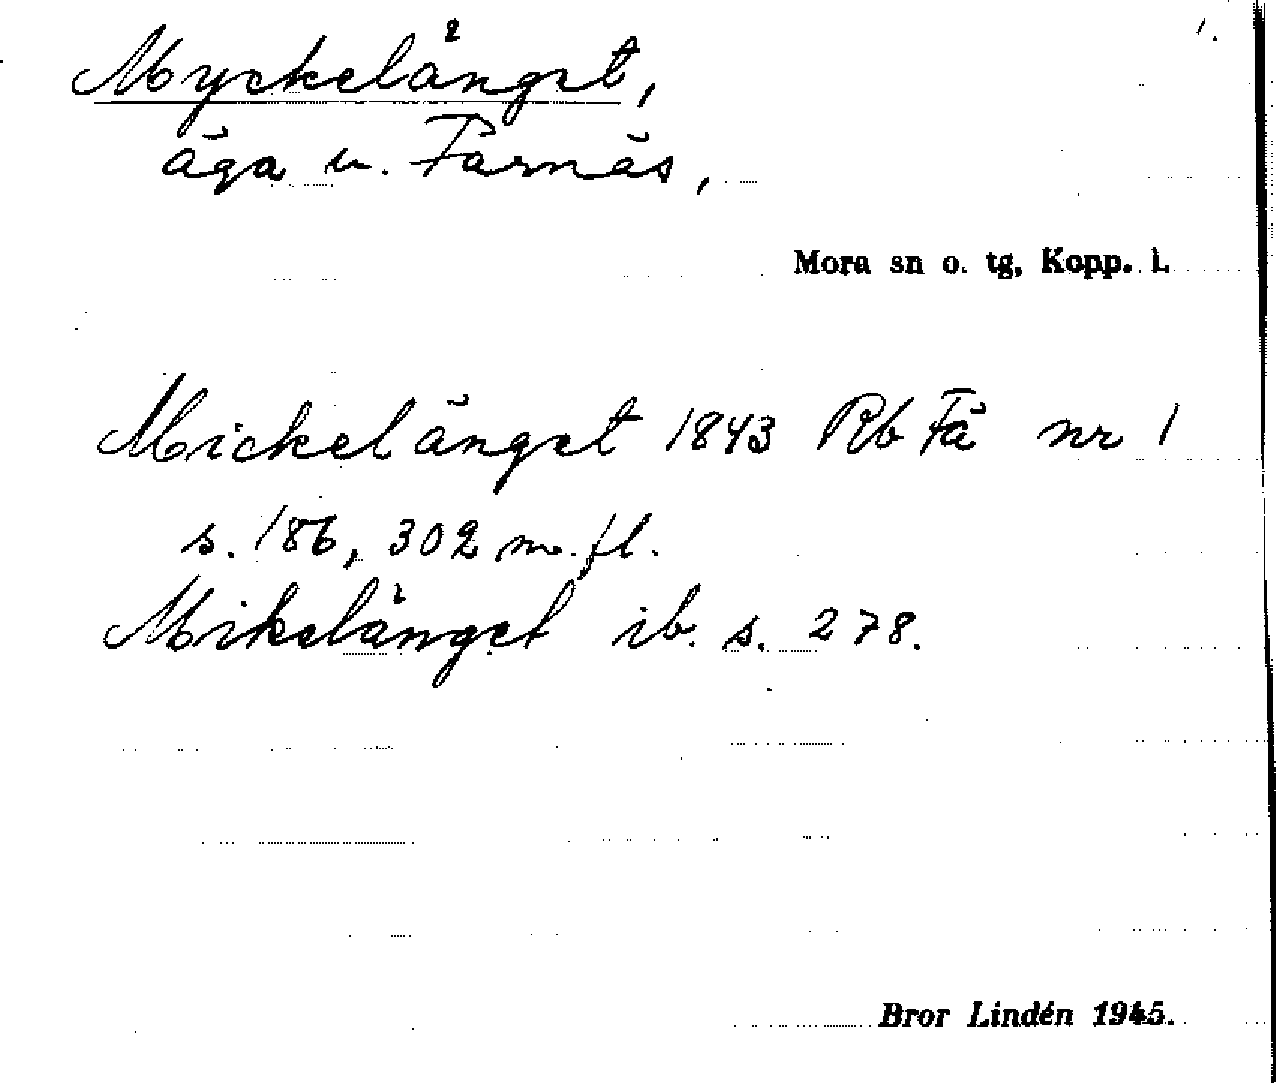 1.
Myckelänget,
äga v. Färnäs,
Mora sn o. tg, Kopp. l.
Mickelänget 1843 Rb Fä nr 1
s. 186, 302 m. fl.
Mikelänget ib. s. 278.
Bror Lindén 1945.